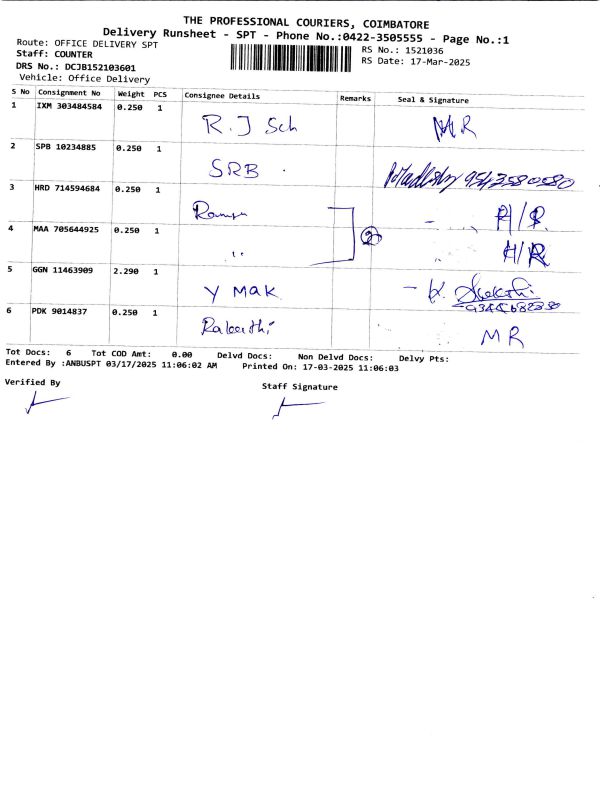 THE PROFESSIONAL COURIERS, COIMBATORE
Delivery Runsheet - SPT - Phone No.:0422-3505555 - Page No.:1
Route: OFFICE DELIVERY SPT
Staff: COUNTER
DRS No.: DCJB152103601
Vehicle: Office Delivery
RS No.: 1521036
RS Date: 17-Mar-2025
S No Consignment No Weight PCS Consignee Details Remarks Seal & Signature
1 IXM 303484584 0.250 1 R.J Sch MR
2 SPB 10234885 0.250 1 SRB
3 HRD 714594684 0.250 1 H/R
4 MAA 705644925 0.250 1 " 2 H/R
5 GGN 11463909 2.290 1 Y MAK
6 PDK 9014837 0.250 1 MR
Tot Docs: 6 Tot COD Amt: 0.00 Delvd Docs: Non Delvd Docs: Delvy Pts:
Entered By :ANBUSPT 03/17/2025 11:06:02 AM Printed On: 17-03-2025 11:06:03
Verified By Staff Signature